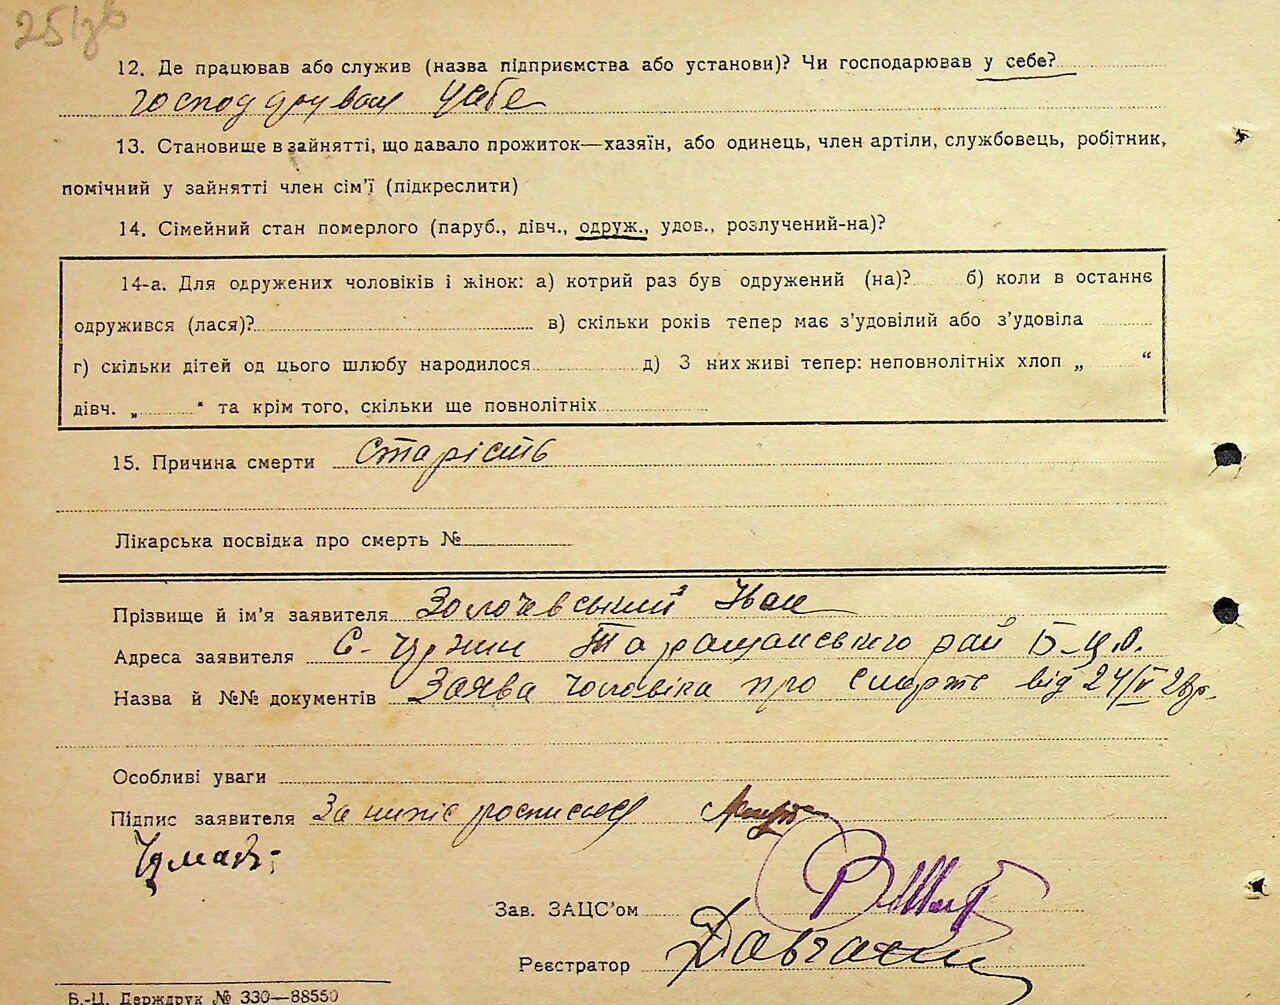 12. Де працював або служив (назва підприємства або установи)? Чи господарював у себе?
13. Становище в зайнятті, що давало прожиток—хазяїн, або одинець, член артілі, службовець, робітник,
помічний у зайнятті член сім'ї (підкреслити)
14. Сімейний стан померлого (паруб., дівч., одруж., удов., розлучений-на)?
14-а. Для одружених чоловіків і жінок: а) котрий раз був одружений (на)? б) коли в останнє
одружився (лася)? в) скільки років тепер має з'удовілий або з'удовіла
г) скільки дітей од цього шлюбу народилося д) З них живі тепер: неповнолітніх хлоп „ “
дівч. „ “ та крім того, скільки ще повнолітніх
15. Причина смерти старість
Лікарська посвідка про смерть №
Прізвище й ім'я заявителя Золочевський Іван
Адреса заявителя с. Таращанського рай Б-Ц.О.
Назва й №№ документів Заява чоловіка про смерть від 24/IV 28р.
Особливі уваги
Підпис заявителя За
Зав. ЗАЦС'ом
Реєстратор
Б.-Ц. Держдрук № 330—88550